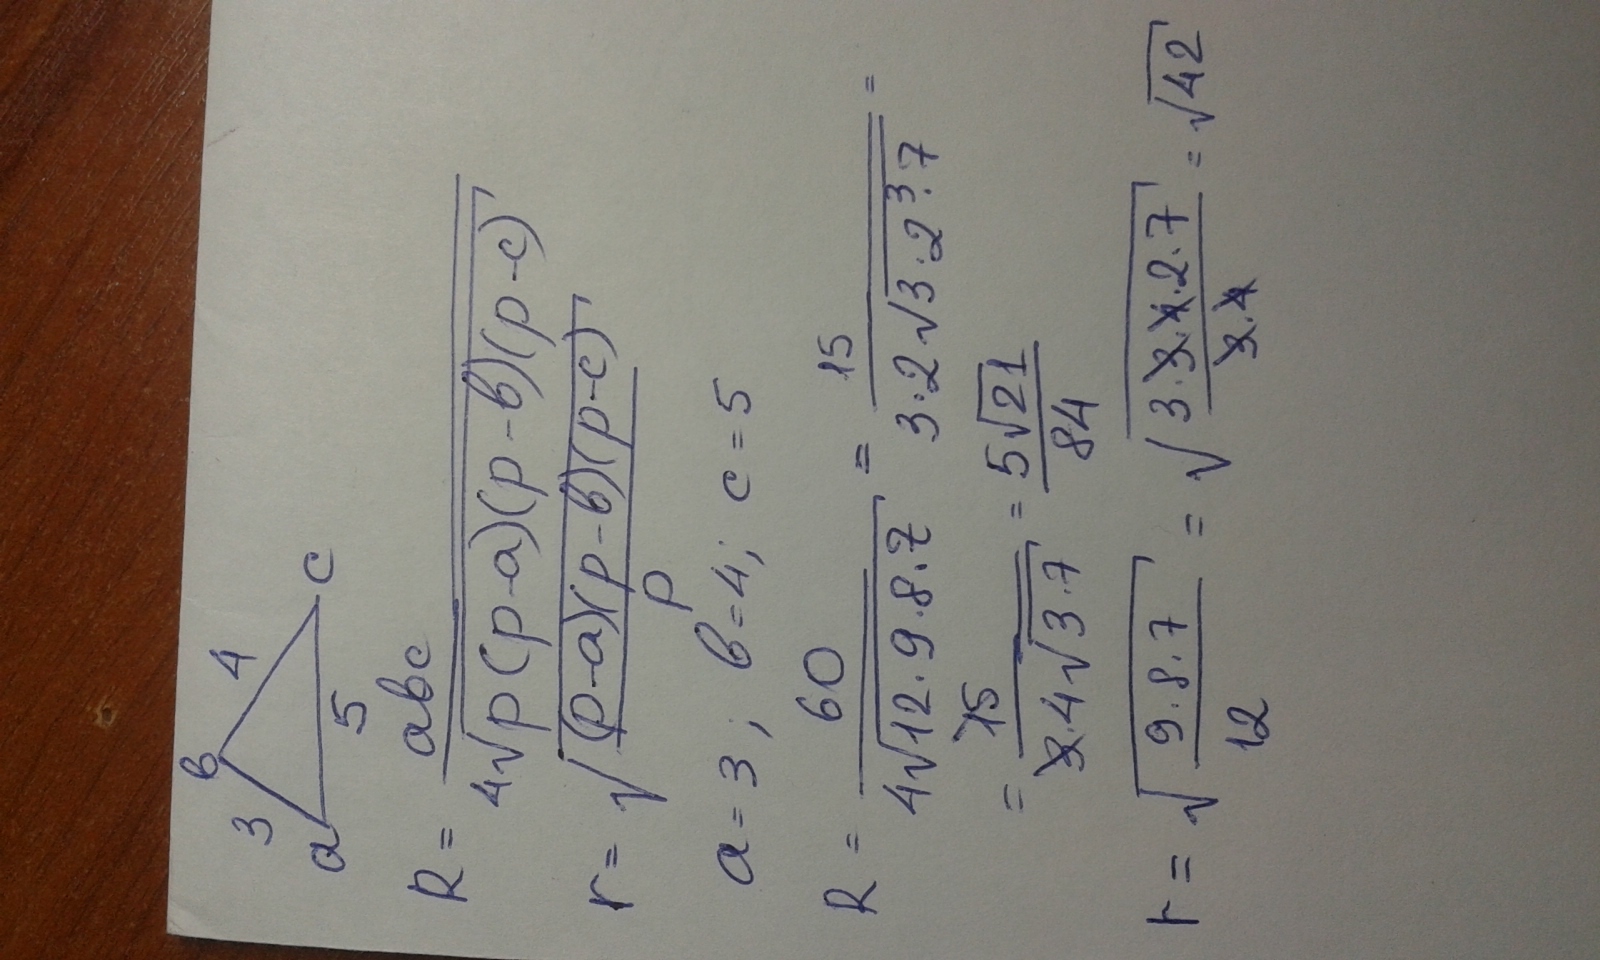 3 в 4
a 5 c
R = abc / 4√p(p-a)(p-в)(p-c)
r = √(p-a)(p-в)(p-c) / p
a=3; в=4; c=5
R = 60 / 4√12·9·8·7 = 15 / 3·2√3·2³·7 =
= 15 / 3·4√3·7 = 5√21 / 84
r = √9·8·7 / 12 = √3·3·4·2·7 / 3·4 = √42